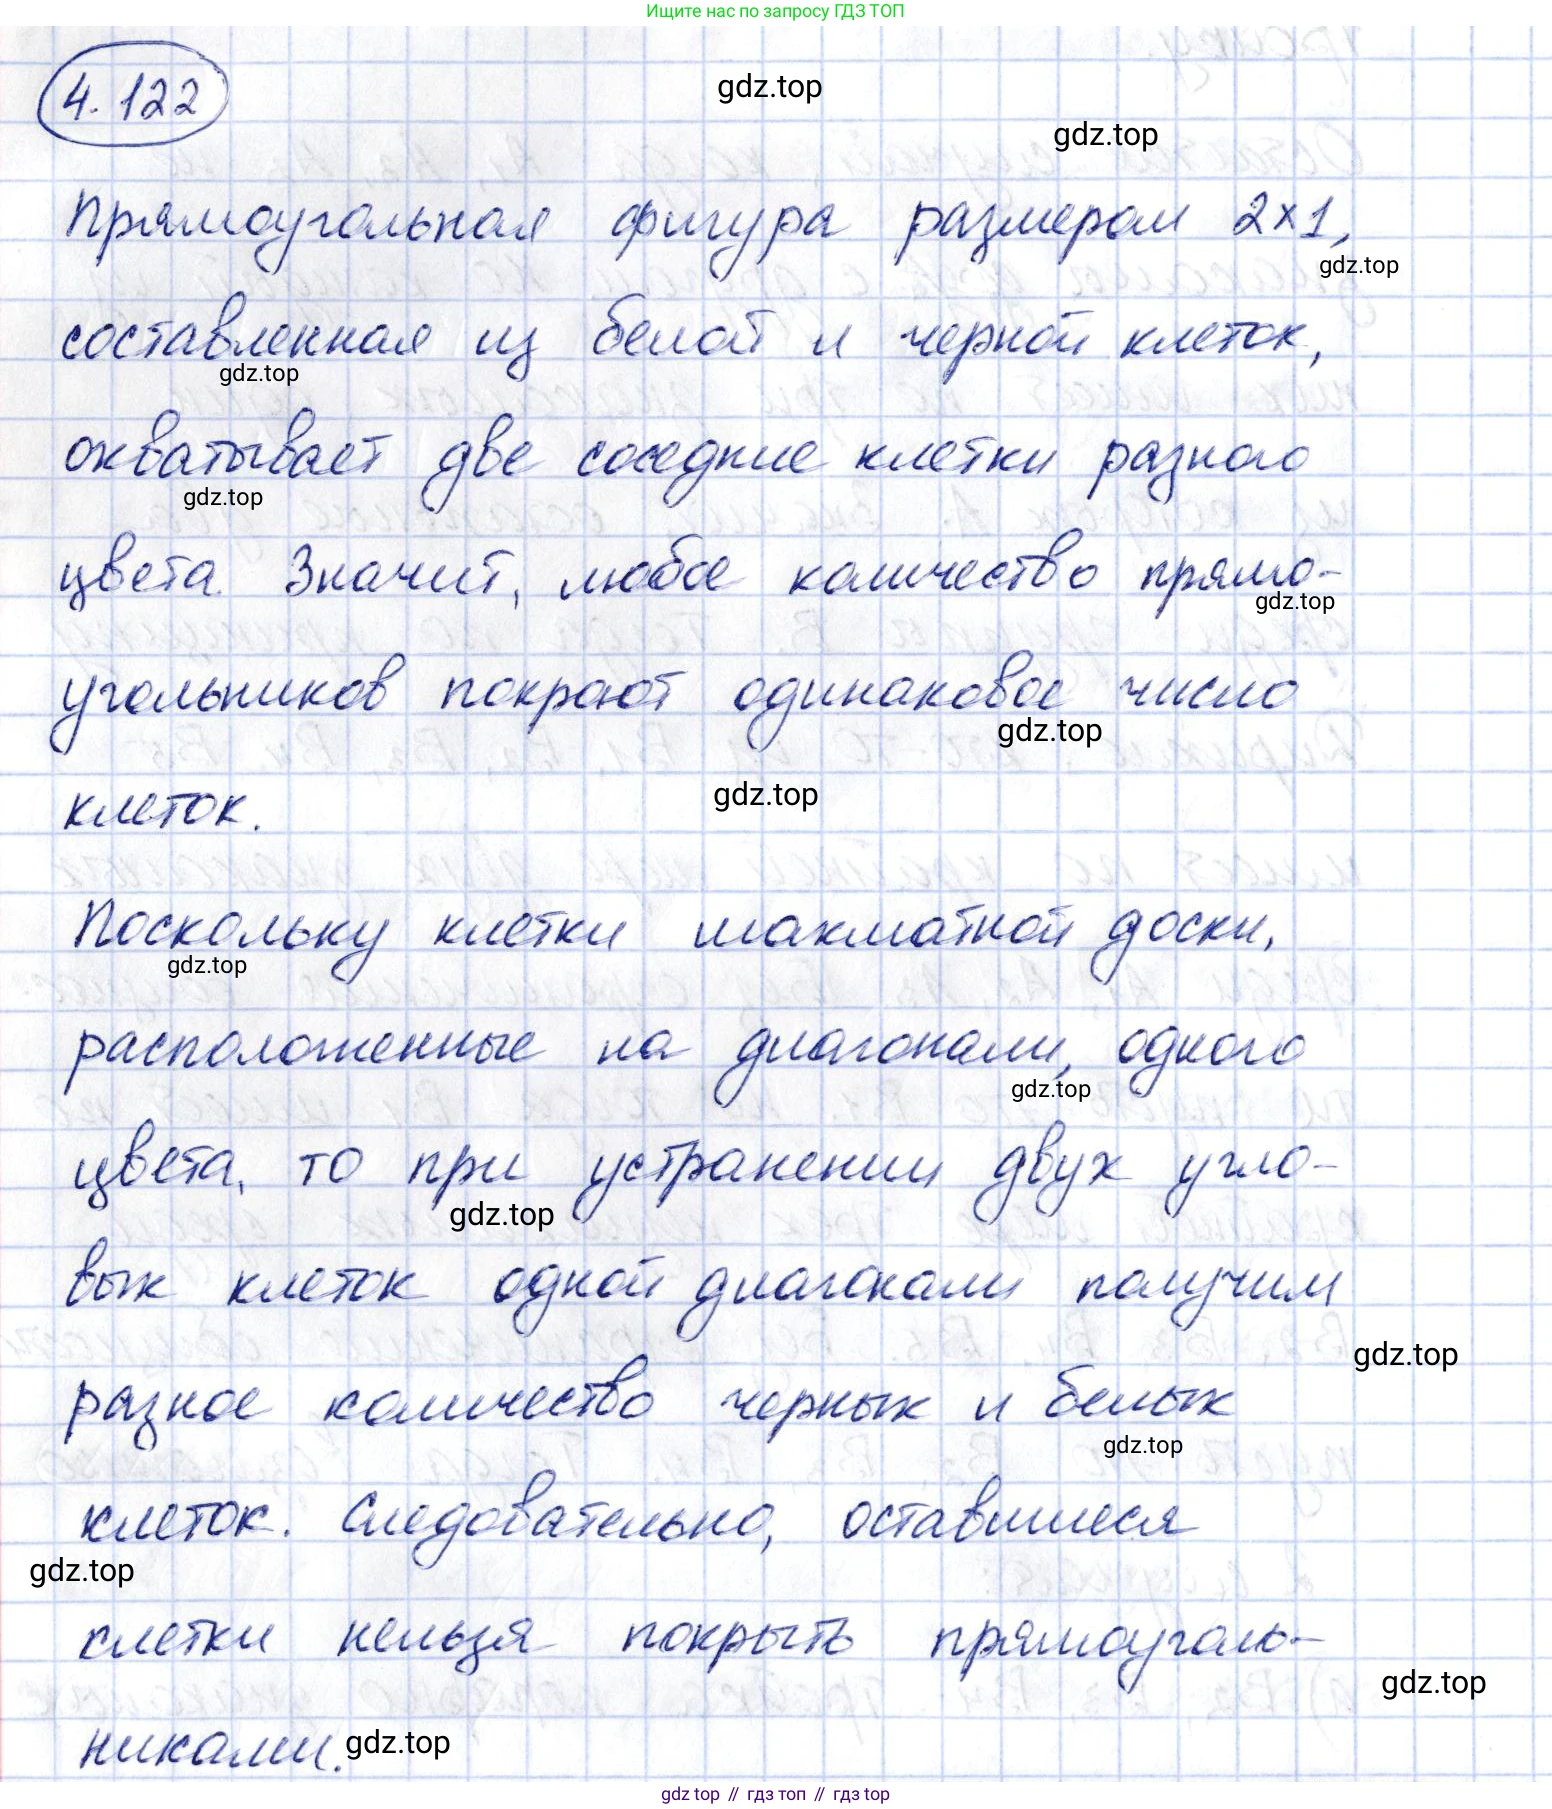 Ищите нас по запросу ГДЗ ТОП
4.122
gdz.top
gdz.top
Прямоугольная фигура размером 2×1,
gdz.top
составленная из белой и черной клеток,
gdz.top
охватывает две соседние клетки разного
gdz.top
цвета. Значит, любое количество прямо-
gdz.top
угольников покроют одинаковое число
gdz.top
клеток.
gdz.top
Поскольку клетки шахматной доски,
gdz.top
расположенные на диагонали, одного
gdz.top
цвета, то при устранении двух угло-
gdz.top
вых клеток одной диагонали получим
gdz.top
разное количество черных и белых
gdz.top
клеток. Следовательно, оставшиеся
gdz.top
клетки нельзя покрыть прямоуголь-
gdz.top
никами.
gdz.top
gdz top // гдз топ // гдз top